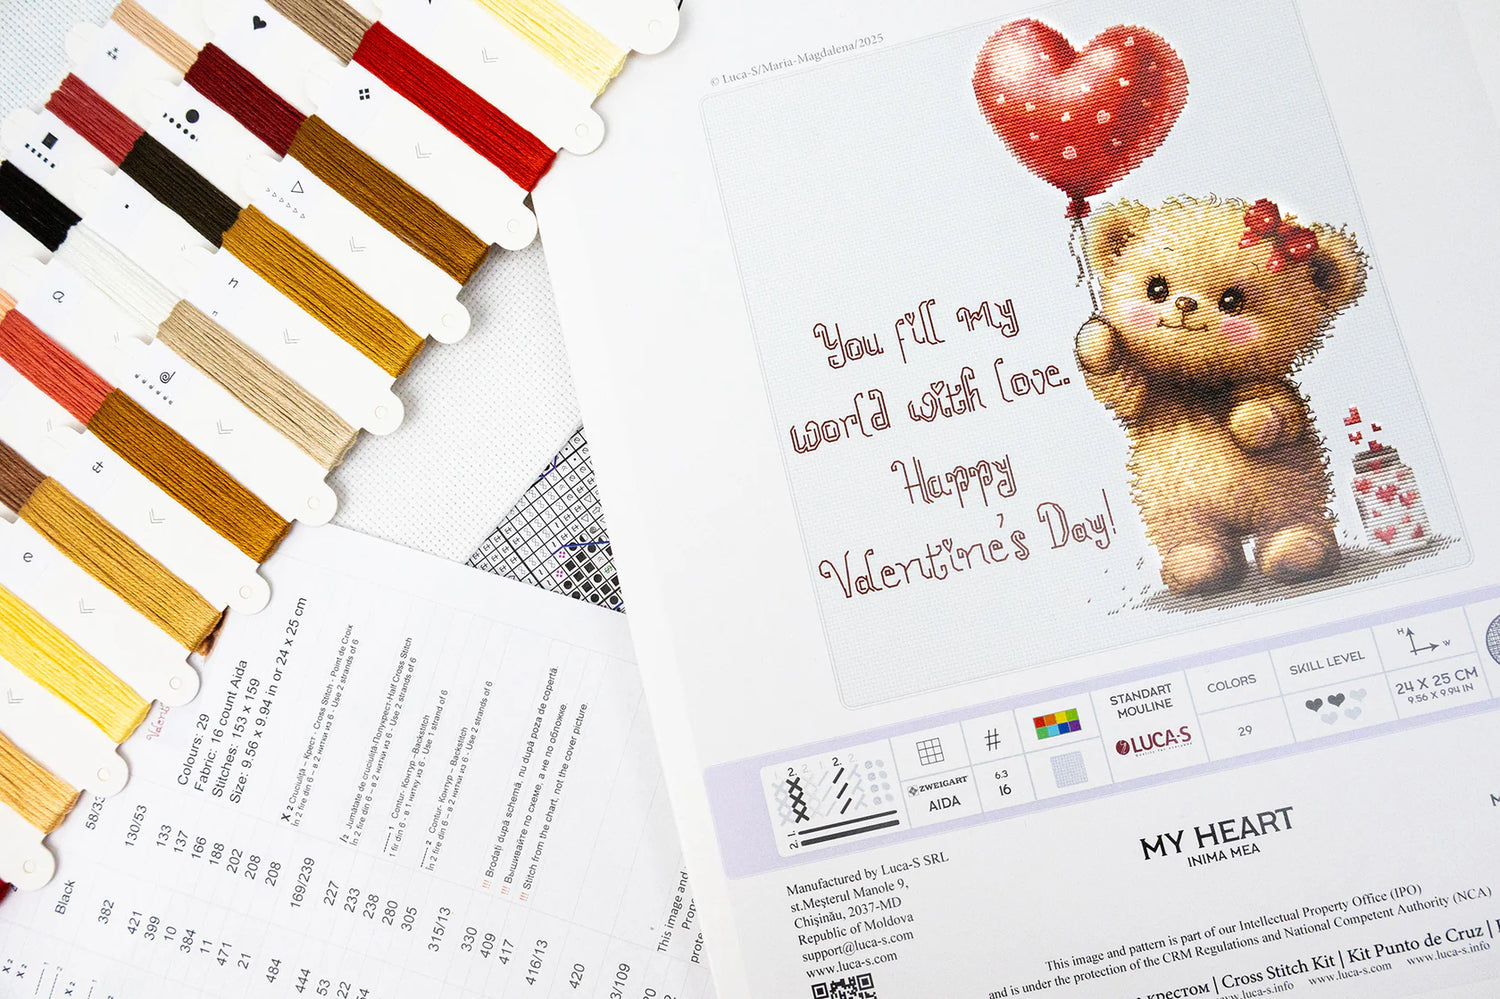 © Luca-S/Maria-Magdalena/2025
You fill my
world with love.
Happy
Valentine's Day!
STANDART
MOULINE
LUCA-S
COLORS
29
SKILL LEVEL
H
W
24 X 25 CM
9.56 X 9.94 IN
ZWEIGART
AIDA
#
6.3
16
2.
2.
1.
2.
MY HEART
INIMA MEA
Manufactured by Luca-S SRL
st.Meşterul Manole 9,
Chişinău, 2037-MD
Republic of Moldova
support@luca-s.com
www.luca-s.com
This image and pattern is part of our Intellectual Property Office (IPO)
and is under the protection of the CRM Regulations and National Competent Authority (NCA)
крестом | Cross Stitch Kit | Kit Punto de Cruz |
www.luca-s.com www.luca-s.info
a
n
e
Colours: 29
Fabric: 16 count Aida
Stitches: 153 x 159
Size: 9.56 x 9.94 in or 24 x 25 cm
X 2 Cruciuliţă - Крест - Cross Stitch - Point de Croix
În 2 fire din 6 - в 2 нитки из 6 - Use 2 strands of 6
/2 Jumătate de cruciuliţă-Полукрест-Half Cross Stitch
În 2 fire din 6 - в 2 нитки из 6 - Use 2 strands of 6
1 Contur- Контур - Backstitch
1 fir din 6 - в 1 нитку из 6 - Use 1 strand of 6
2 Contur- Контур - Backstitch
În 2 fire din 6 - в 2 нитки из 6 - Use 2 strands of 6
!!! Brodaţi după schemă, nu după poza de copertă.
!!! Вышивайте по схеме, а не по обложке.
!!! Stitch from the chart, not the cover picture.
58/33
130/53
133
137
166
188
202
208
208
169/239
227
233
238
280
305
315/13
330
409
417
416/13
420
Black
382
421
399
10
384
11
471
21
484
444
53
22
364
This image and